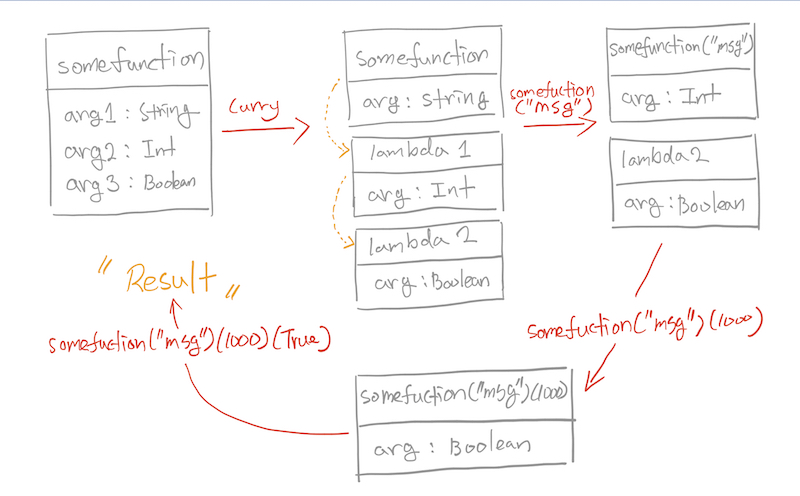 somefunction
arg1 : String
arg2 : Int
arg3 : Boolean
Curry
somefunction
arg : string
lambda 1
arg : Int
lambda 2
arg : Boolean
somefuction
("msg")
somefunction("msg")
arg : Int
lambda 2
arg : Boolean
somefuction("msg")(1000)
somefuction("msg")(1000)
arg : Boolean
somefuction("msg")(1000)(True)
"Result"